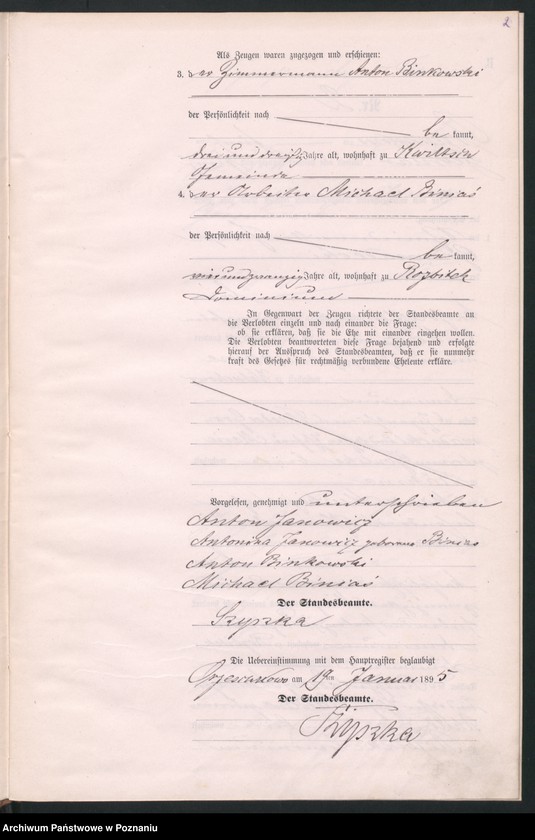 2
Als Zeugen waren zugezogen und erschienen:
3. der Zimmermann Anton Binkowski
der Persönlichkeit nach
be kannt,
drei und dreißig Jahre alt, wohnhaft zu Kwiltsch
Gemeinde
4. der Arbeiter Michael Biniaś
der Persönlichkeit nach
be kannt,
vierundzwanzig Jahre alt, wohnhaft zu Rozbitek
Dominium
In Gegenwart der Zeugen richtete der Standesbeamte an
die Verlobten einzeln und nach einander die Frage:
ob sie erklären, daß sie die Ehe mit einander eingehen wollen.
Die Verlobten beantworteten diese Frage bejahend und erfolgte
hierauf der Ausspruch des Standesbeamten, daß er sie nunmehr
kraft des Gesetzes für rechtmäßig verbundene Eheleute erkläre.
Vorgelesen, genehmigt und unterschrieben
Anton Janowicz
Antonina Janowicz geborene Binias
Anton Binkowski
Michael Biniaś
Der Standesbeamte.
Die Uebereinstimmung mit dem Hauptregister beglaubigt
am 19ten Januar 1895
Der Standesbeamte.
Archiwum Państwowe w Poznaniu